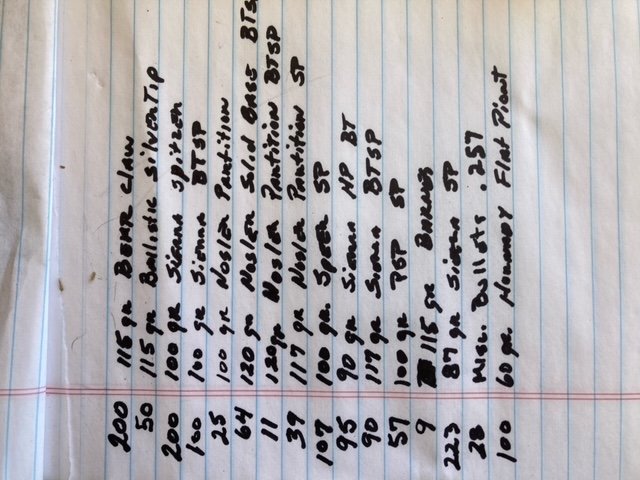 200 115 gr BEAR Claw
50 115 gr Ballistic SilverTip
200 100 gr Sierra Spitzer
100 100 gr Sierra BTSP
25 100 gr Nosler Partition
64 120 gr Nosler Solid Base BTS
11 120 gr Nosler Partition BTSP
39 117 gr Nosler Partition SP
107 100 gr. Speer SP
95 90 gr Sierra HP BT
90 117 gr Sierra BTSP
57 100 gr PSP SP
9 115 gr BARNES
223 87 gr Sierra SP
28 Misc. Bullets .257
100 60 gr. Hornady Flat Piont